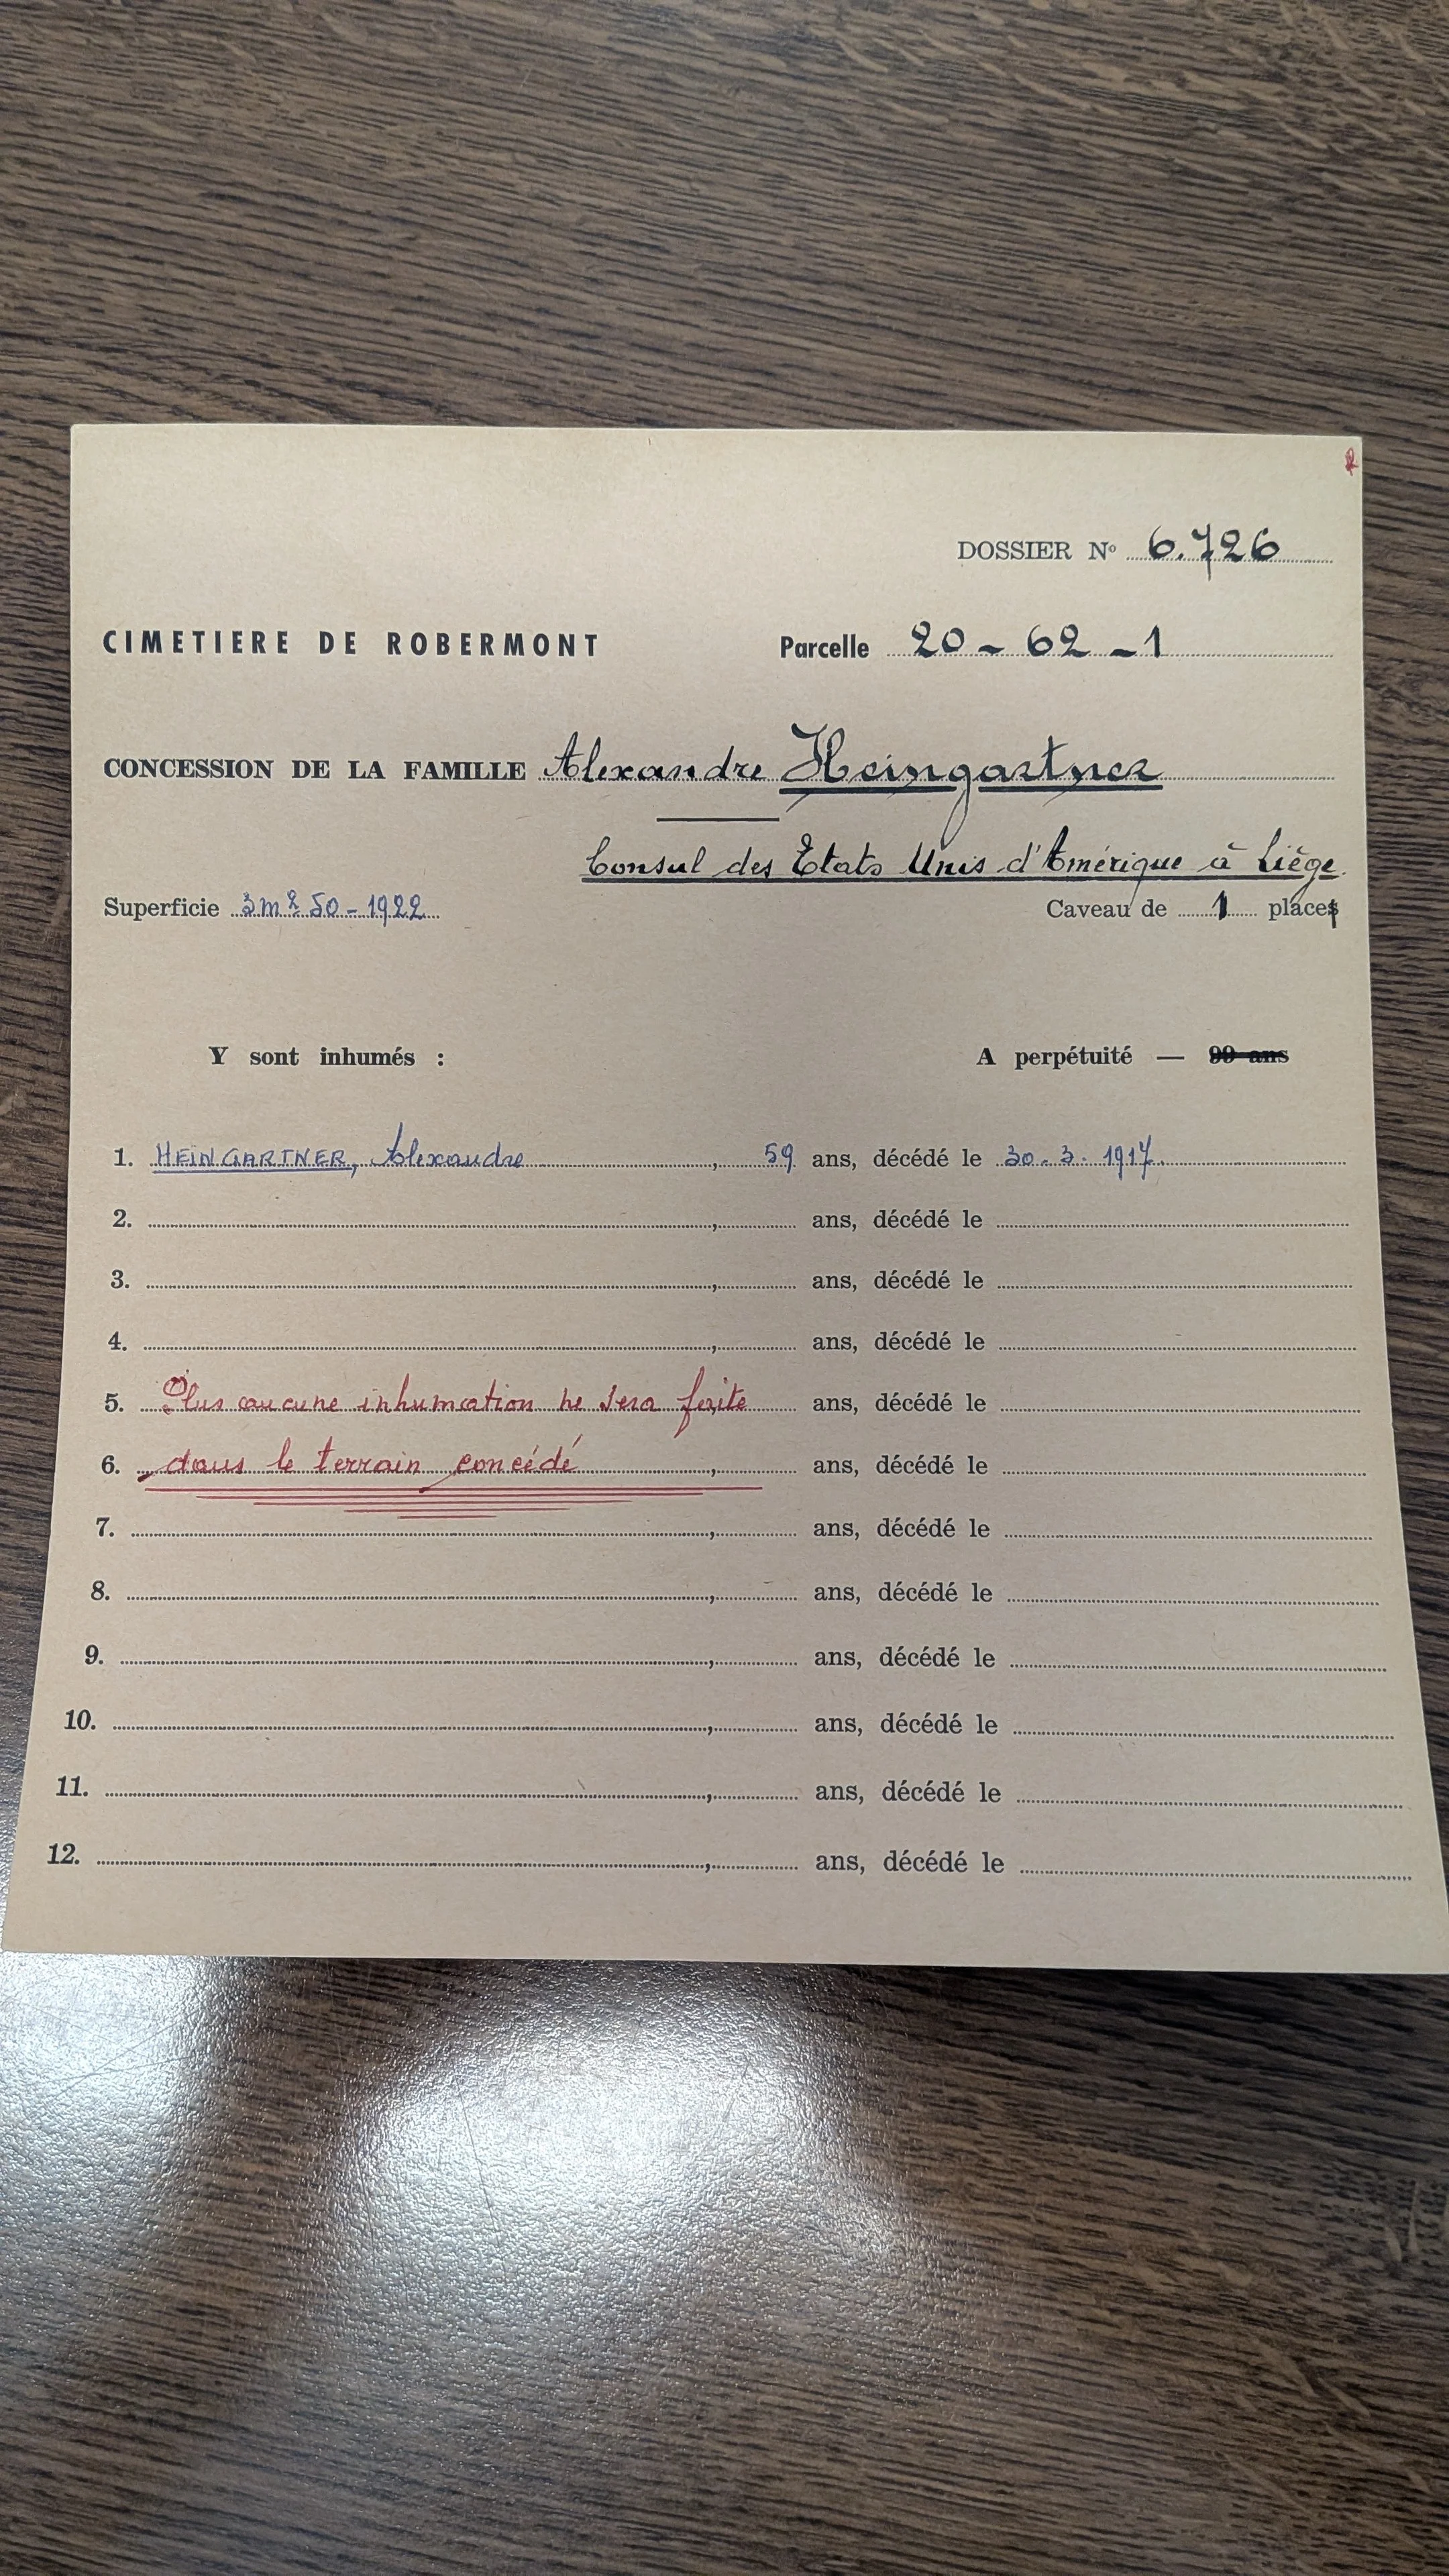 DOSSIER Nº 6.726
CIMETIERE DE ROBERMONT Parcelle 20 - 62 - 1
CONCESSION DE LA FAMILLE Alexandre Heingartner
Consul des Etats Unis d'Amérique à Liége.
Superficie 3m² 50 - 1922 Caveau de 1 place
Y sont inhumés : A perpétuité — 99 ans
1. HEINGARTNER, Alexandre, 59 ans, décédé le 30.3.1917.
2. , ans, décédé le
3. , ans, décédé le
4. , ans, décédé le
5. Plus aucune inhumation ne sera faite ans, décédé le
6. dans le terrain concédé , ans, décédé le
7. , ans, décédé le
8. , ans, décédé le
9. , ans, décédé le
10. , ans, décédé le
11. , ans, décédé le
12. , ans, décédé le